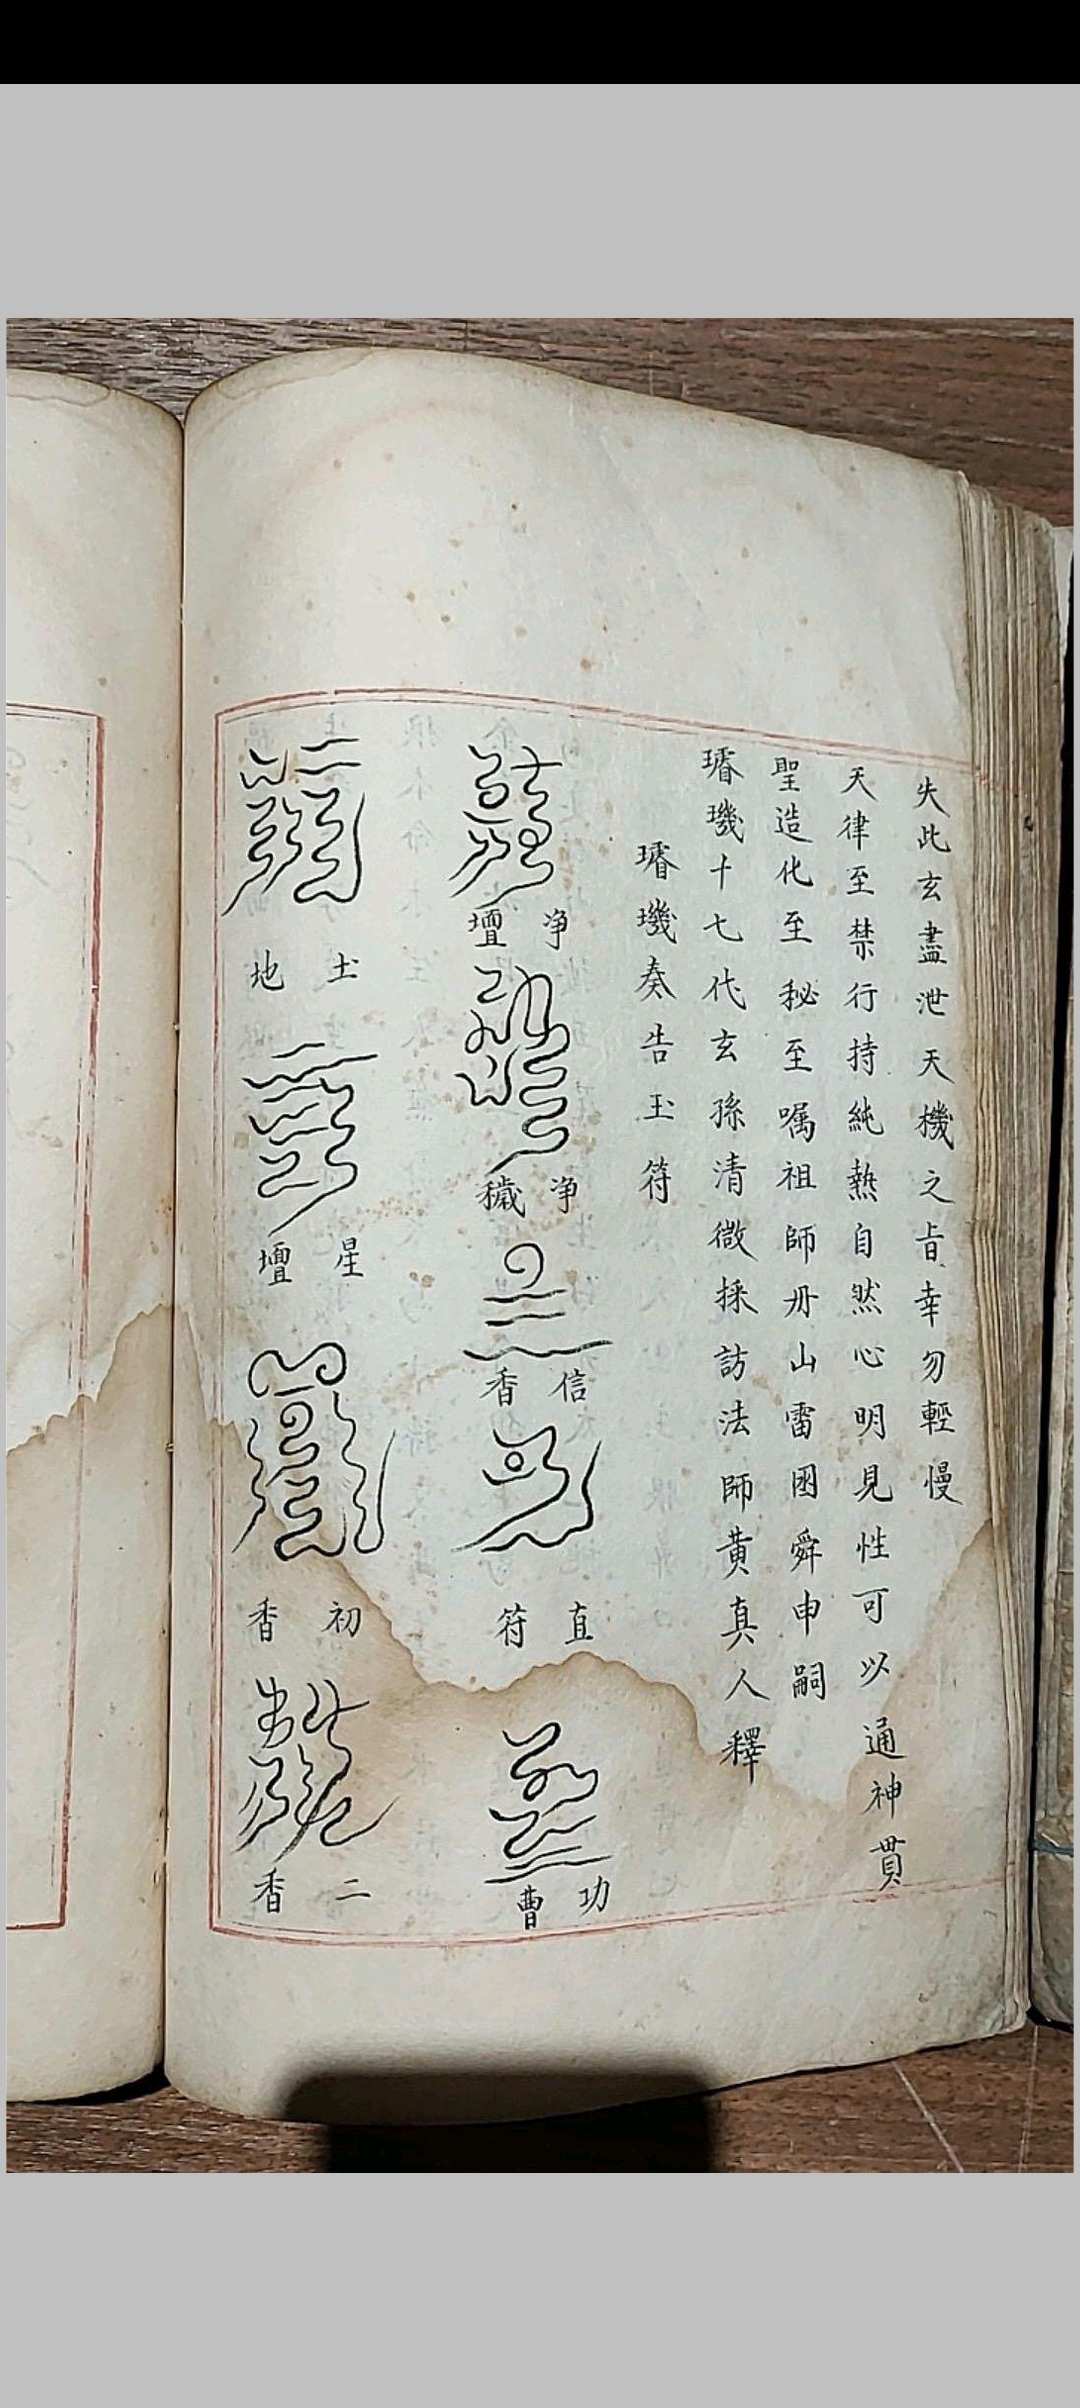 失此玄盡泄天機之旨幸勿輕慢
天律至禁行持純熱自然心明見性可以通神貫
聖造化至秘至嘱祖師丹山雷困舜申嗣
璿璣十七代玄孫清微採訪法師黄真人釋
璿璣奏告玉符
净壇
净穢
信香
直符
功曹
土地
星壇
初香
二香